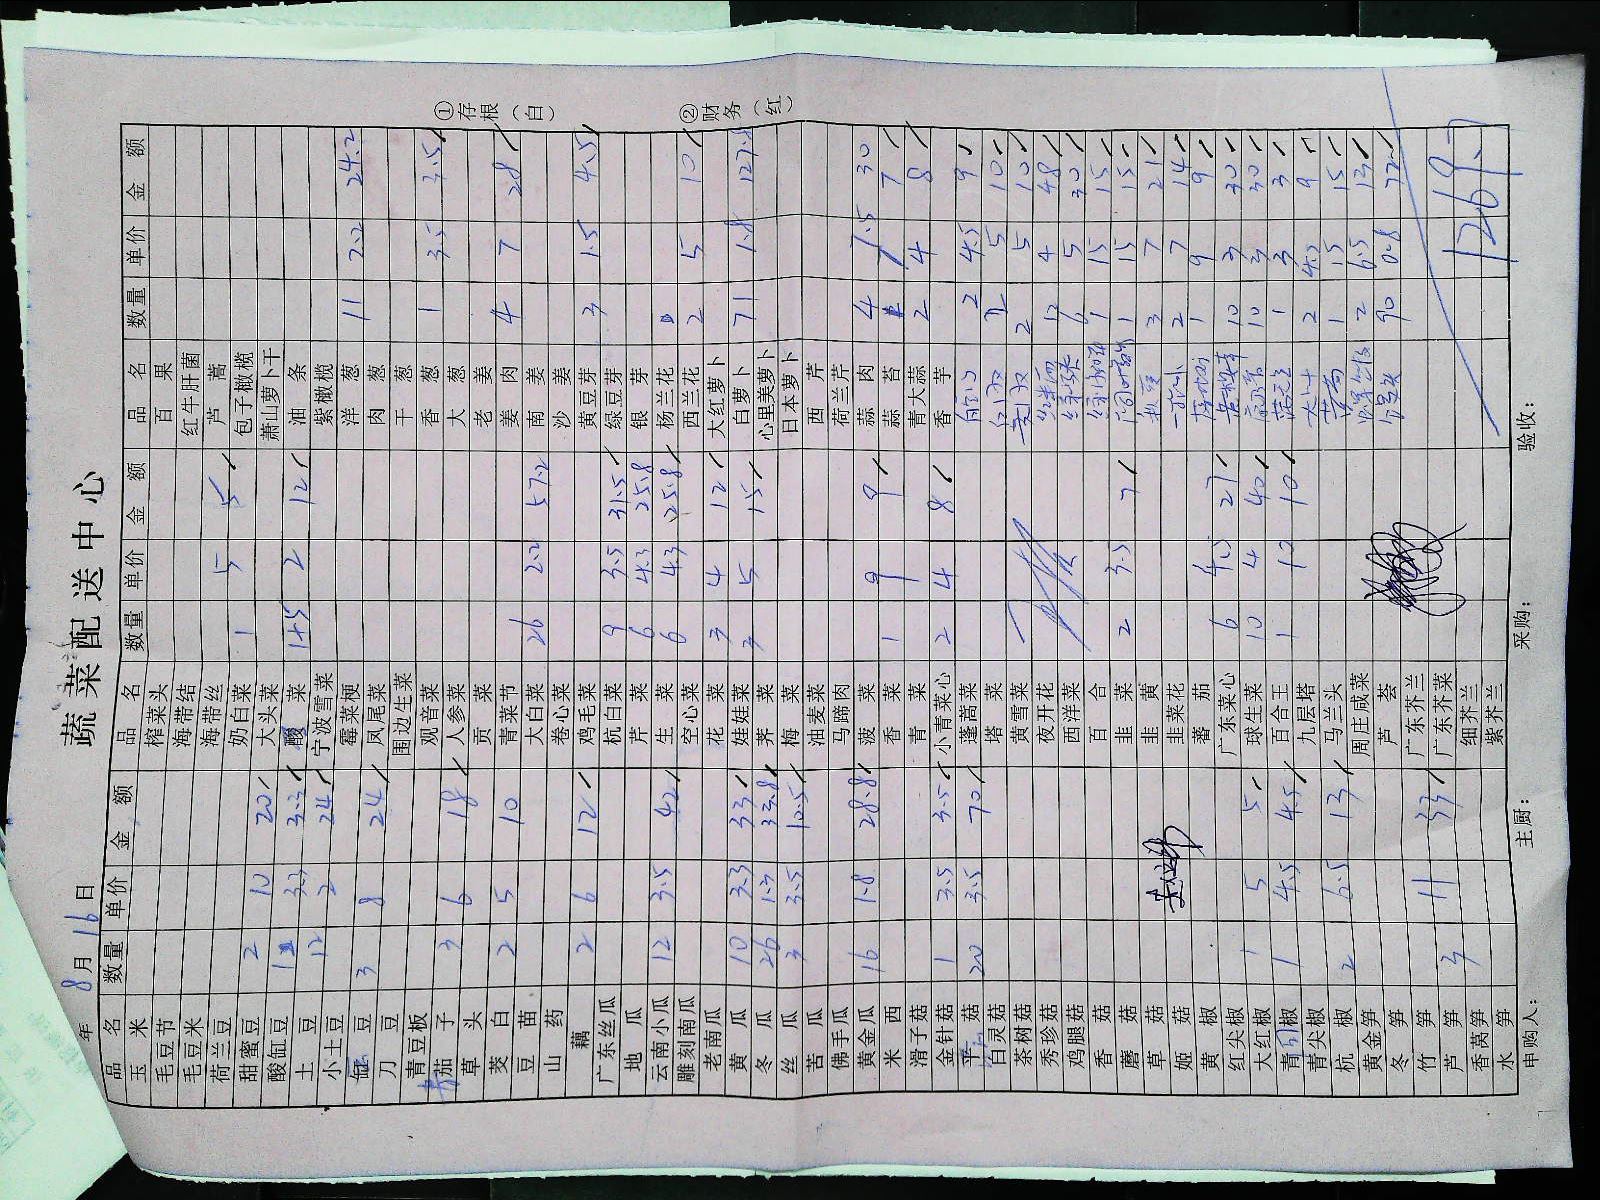 蔬菜配送中心
年 8月16日
品名 数量 单价 金额 品名 数量 单价 金额 品名 数量 单价 金额
玉米 榨菜头 百果
毛豆节 海带结 红牛肝菌
毛豆米 海带丝 芦蒿
荷兰豆 奶白菜 1 5 5 包子橄榄
甜蜜豆 2 10 20 大头菜 萧山萝卜干
酸缸豆 3.3 3.3 酸菜 2 12 油条
土豆 12 2 24 宁波雪菜 紫橄榄
小土豆 霉菜梗 洋葱 11 2.2 24.2
缸豆 3 8 24 凤尾菜 肉葱
刀豆 围边生菜 干葱
青豆板 观音菜 香葱 1 3.5 3.5
茄子 3 6 18 人参菜 大葱
草头 贡菜 老姜
茭白 2 5 10 青菜节 姜肉 4 7 28
豆苗 大白菜 26 2.2 57.2 南姜
山药 卷心菜 沙姜
藕 2 6 12 鸡毛菜 黄豆芽 3 1.5 4.5
广东丝瓜 杭白菜 9 3.5 31.5 绿豆芽
地瓜 芹菜 6 4.3 25.8 银芽
云南小瓜 12 3.5 42 生菜 6 4.3 25.8 杨兰花
雕刻南瓜 空心菜 西兰花 2 5 10
老南瓜 花菜 3 4 12 大红萝卜
黄瓜 10 3.3 33 娃娃菜 3 5 15 白萝卜 71 1.8 127.8
冬瓜 26 1.3 33.8 荠菜 心里美萝卜
丝瓜 3 3.5 10.5 梅菜 日本萝卜
苦瓜 油麦菜 西芹
佛手瓜 马蹄肉 荷兰芹
黄金瓜 16 1.8 28.8 菠菜 蒜肉 4 7.5 30
西米 香菜 1 9 9 蒜苔 7
滑子菇 青菜 青大蒜 2 4 8
金针菇 1 3.5 3.5 小青菜心 2 4 8 香芋
平菇 20 3.5 70 蓬蒿菜 2 4.5 9
白灵菇 塔菜 2 5 10
茶树菇 黄雪菜 2 5 10
秀珍菇 夜开花 12 4 48
鸡腿菇 西洋菜 6 5 30
香菇 百合 1 15 15
蘑菇 韭菜 2 3.5 7 1 15 15
草菇 韭黄 3 7 21
姬菇 韭菜花 2 7 14
黄椒 番茄 1 9 9
红尖椒 广东菜心 6 4.5 27 10 3 30
大红椒 1 5 5 球生菜 10 4 40 10 3 30
青椒 1 4.5 4.5 百合王 1 10 10 1 3 3
青尖椒 九层塔 2 4.5 9
杭椒 2 6.5 13 马兰头 1 15 15
黄金笋 周庄咸菜 2 6.5 13
冬笋 芦荟 90 0.8 72
竹笋 广东芥兰
芦笋 3 11 33 广东芥菜 1269.7
香莴笋 细芥兰
水笋 紫芥兰
申购人： 主厨： 采购： 验收：
①存根（白）
②财务（红）